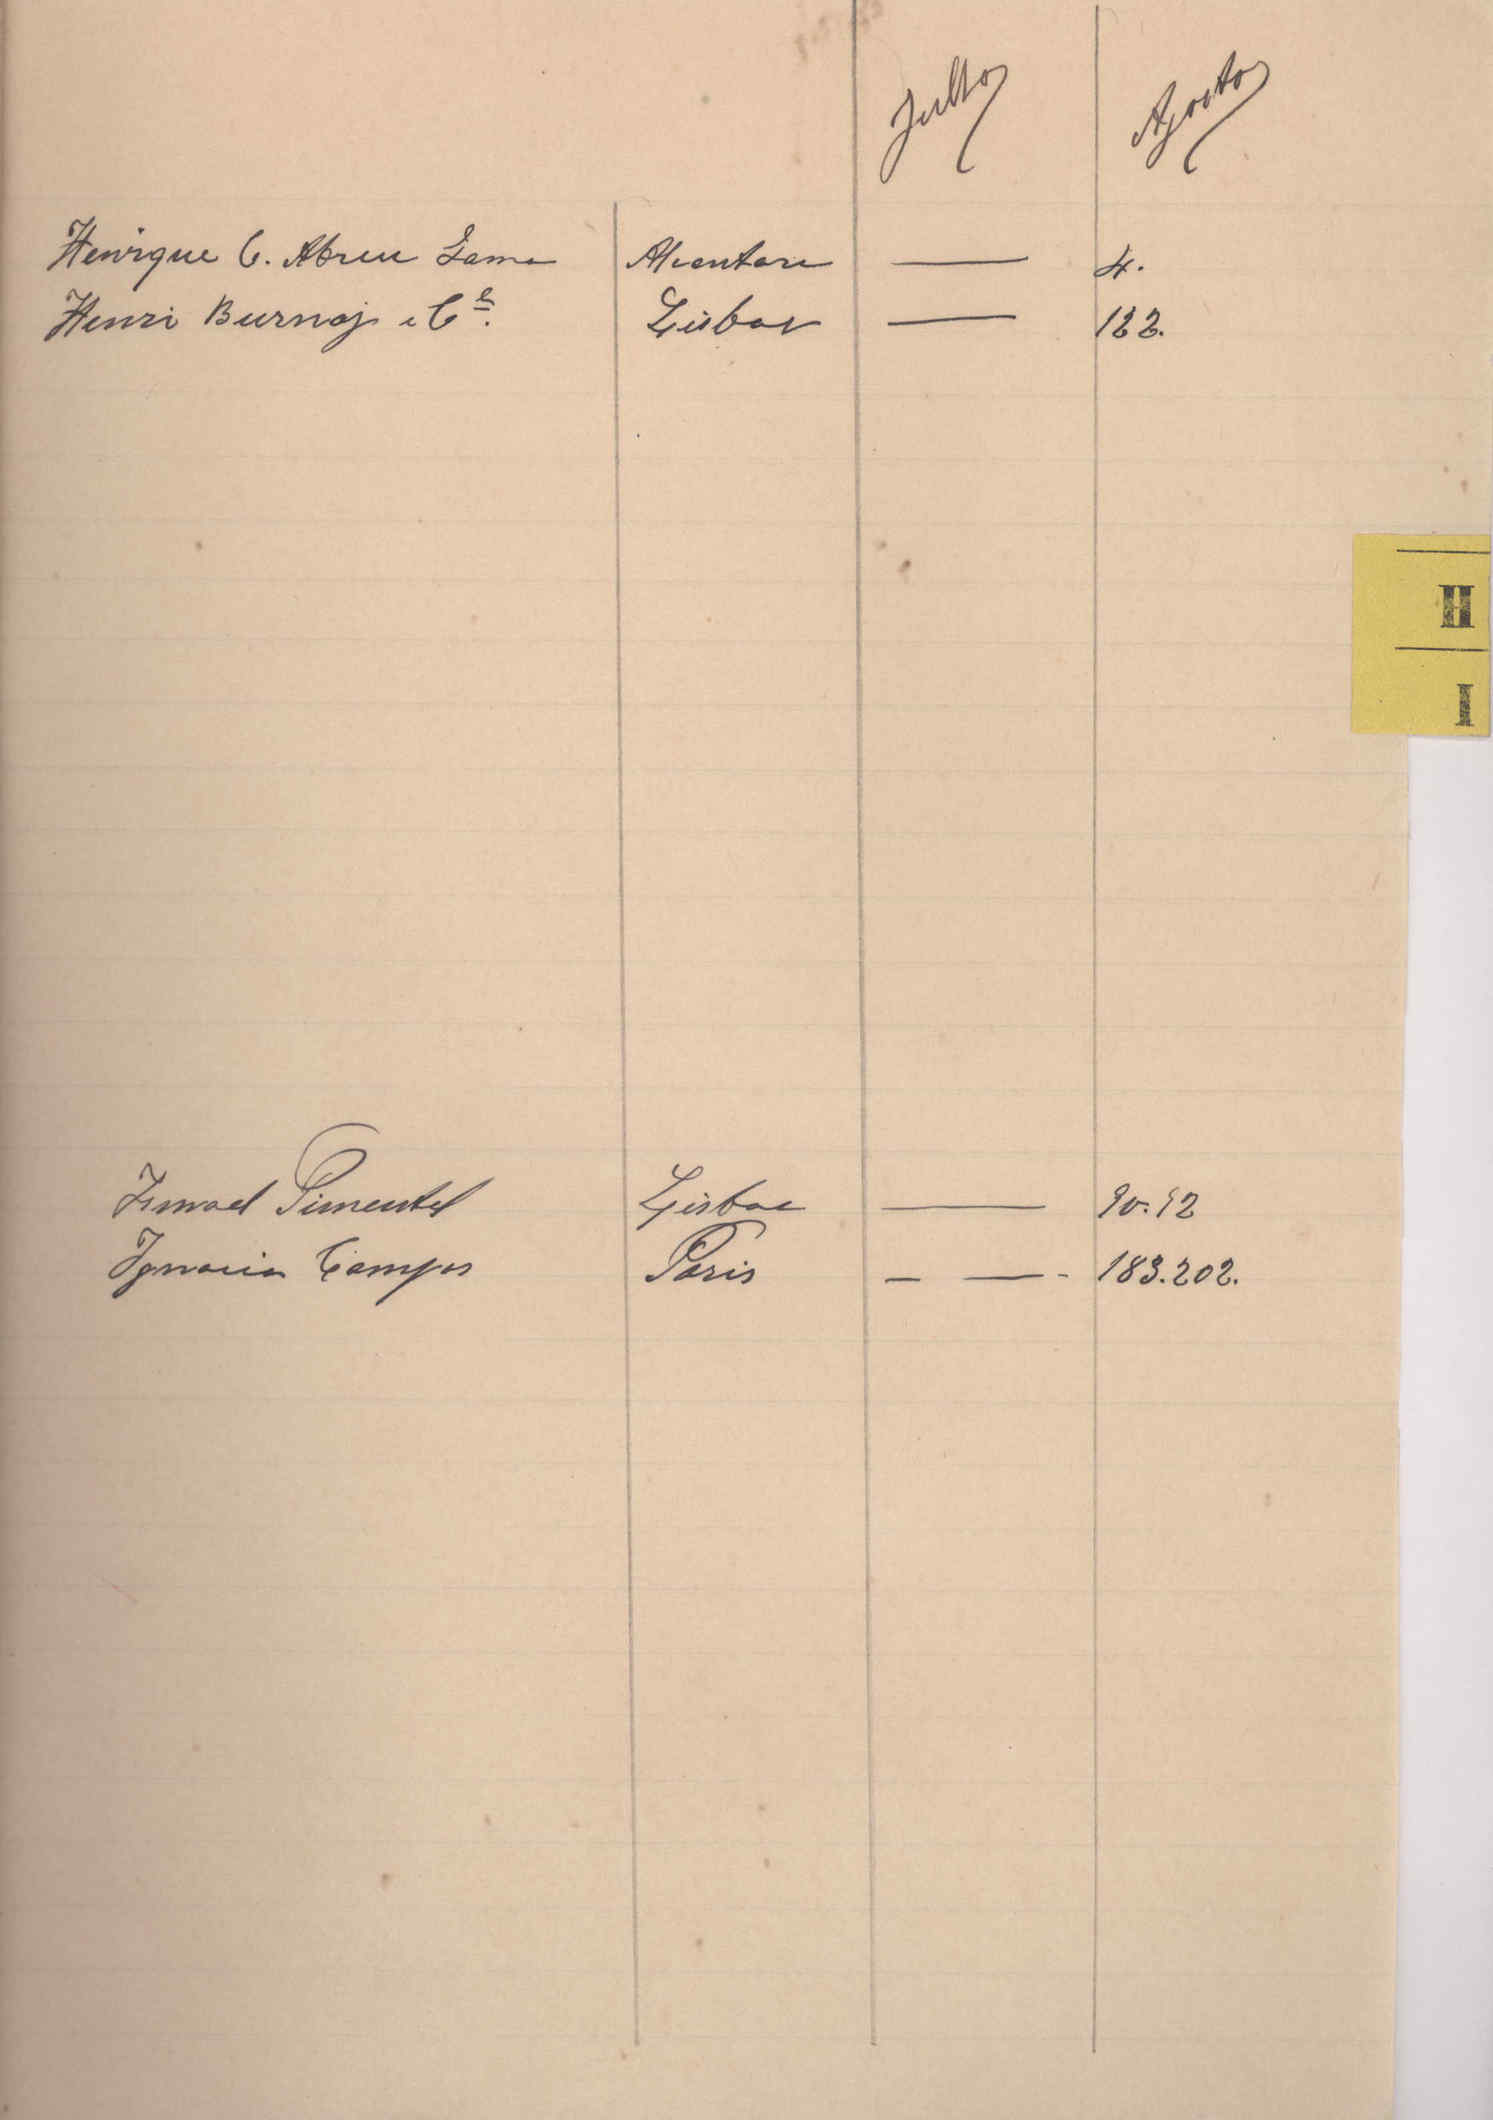 Julho Agosto
Henrique C. Abreu Gama Alcantara — 4.
Henri Burnay & Cª. Lisboa — 122.
H
I
Ismael Pimentel Lisboa — 90.92
Ignacio Campos Paris — — - 183.202.